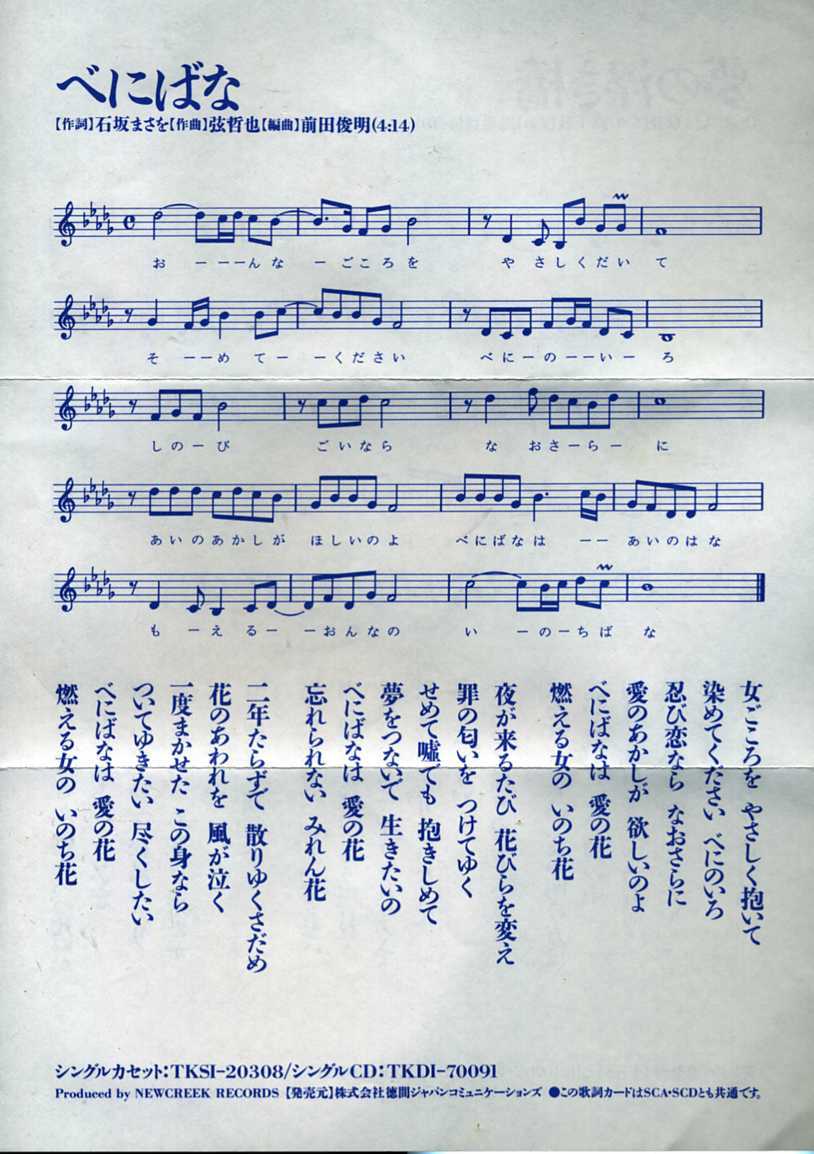 べにばな
【作詞】石坂まさを【作曲】弦哲也【編曲】前田俊明(4:14)
おーーーんなーごころを やさしくだいて
そーーめてーーください べにーのーーいーろ
しのーび ごいなら なおさーらーに
あいのあかしが ほしいのよ べにばなはーー あいのはな
もーえるーーおんなの いーのーちばな
女ごころを やさしく抱いて
染めてください べにのいろ
忍び恋なら なおさらに
愛のあかしが 欲しいのよ
べにばなは 愛の花
燃える女の いのち花
夜が来るたび 花びらを変え
罪の匂いを つけてゆく
せめて嘘でも 抱きしめて
夢をつないで 生きたいの
べにばなは 愛の花
忘れられない みれん花
二年たらずで 散りゆくさだめ
花のあわれを 風が泣く
一度まかせた この身なら
ついてゆきたい 尽くしたい
べにばなは 愛の花
燃える女の いのち花
シングルカセット:TKSI-20308/シングルCD:TKDI-70091
Produced by NEWCREEK RECORDS 【発売元】株式会社徳間ジャパンコミュニケーションズ ●この歌詞カードはSCA・SCDとも共通です。